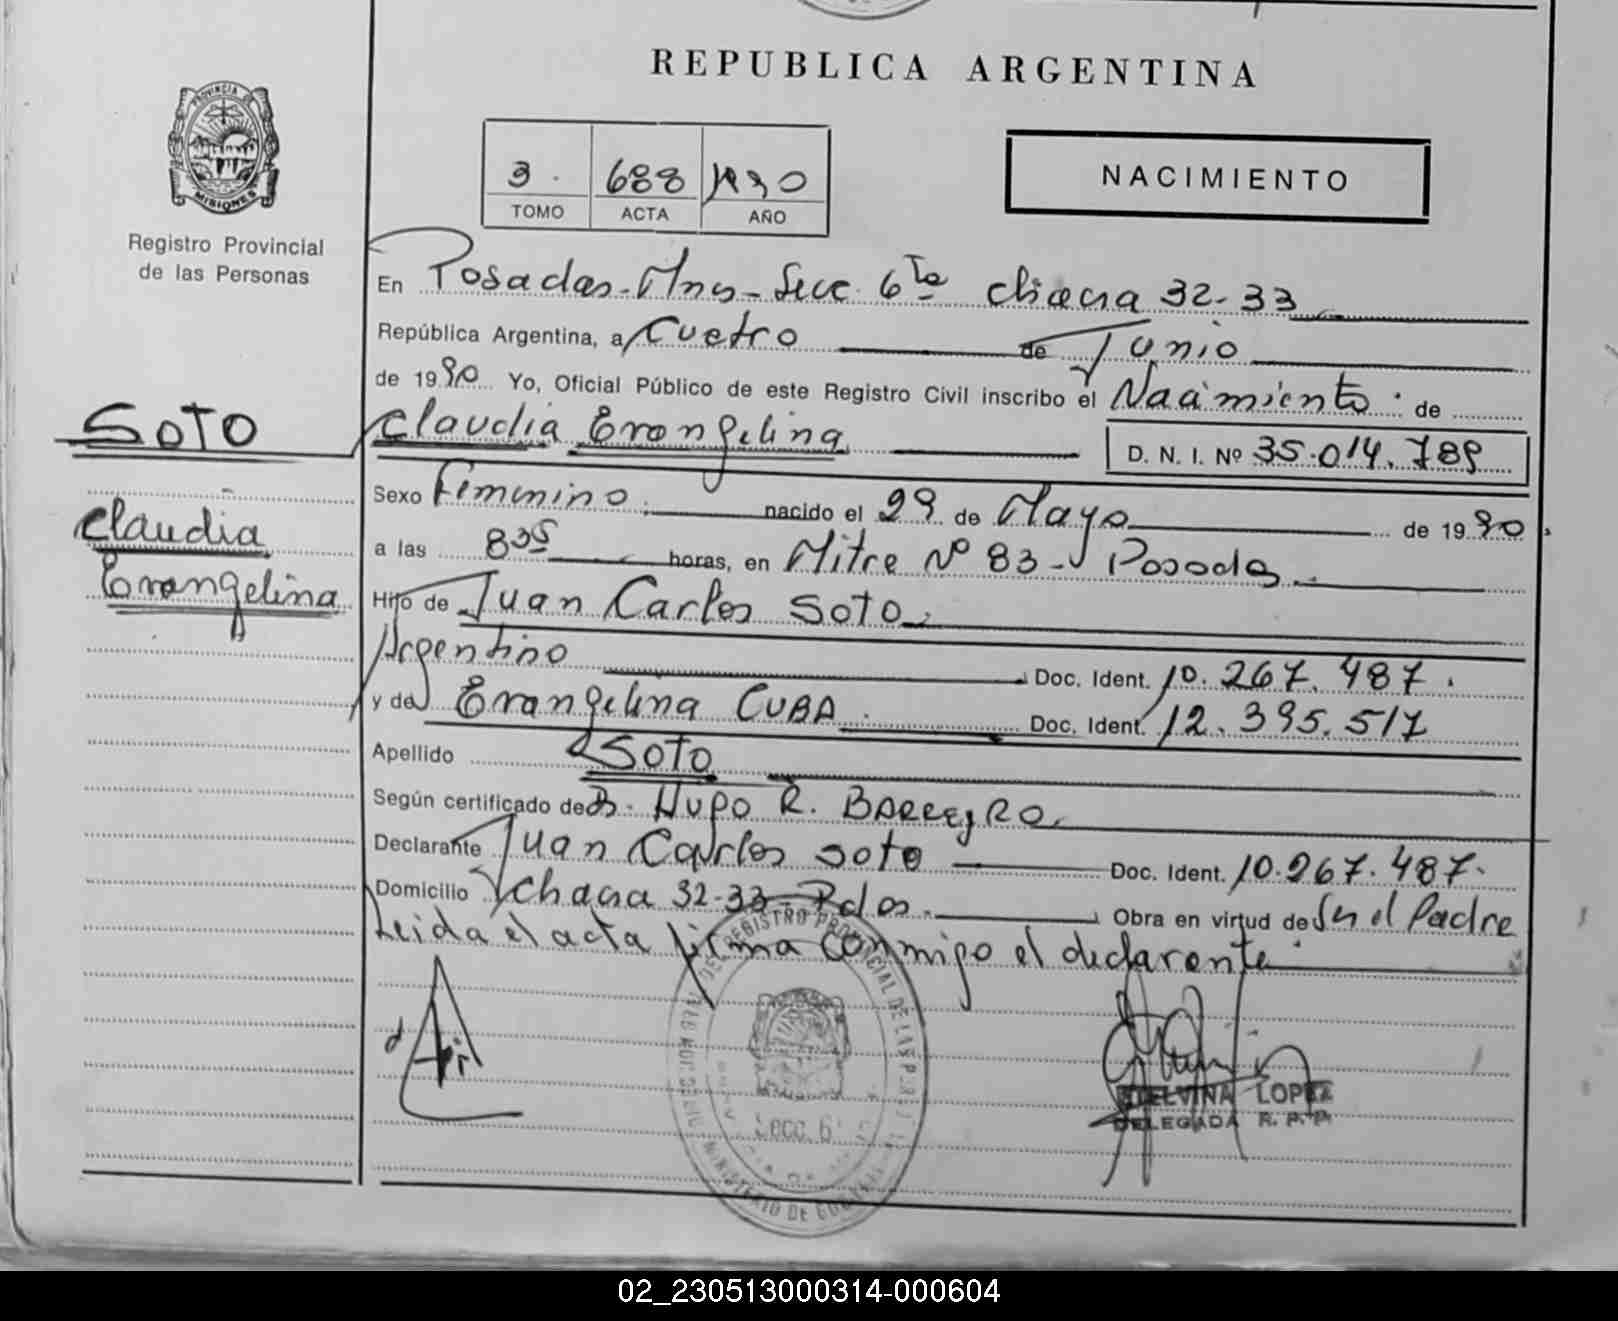 REPUBLICA ARGENTINA
PROVINCIA DE
MISIONES
Registro Provincial
de las Personas
3. 688 1990
TOMO ACTA AÑO
NACIMIENTO
En Posadas-Mnes-Secc 6ta chacra 32-33
República Argentina, a Cuatro de Junio
de 1990 Yo, Oficial Público de este Registro Civil inscribo el Nacimiento de
SOTO
Claudia Evangelina
D. N. I. Nº 35.014.789
Claudia
Evangelina
Sexo Femenino nacido el 29 de Mayo de 1990
a las 835 horas, en Mitre Nº 83- Posadas
Hijo de Juan Carlos SOTO
Argentino Doc. Ident. 10.267.487.
y de Evangelina CUBA Doc. Ident. 12.395.517
Apellido SOTO
Según certificado de Hugo R. BARREYRO
Declarante Juan Carlos Soto Doc. Ident. 10.267.487.
Domicilio chacra 32-33- Pdas. Obra en virtud de Ser el Padre
Leida el acta firma conmigo el declarante
REGISTRO PROVINCIAL DE LAS
Secc. 6
MINISTERIO DE
LOPEZ
DELEGADA R.P.P.
02_230513000314-000604